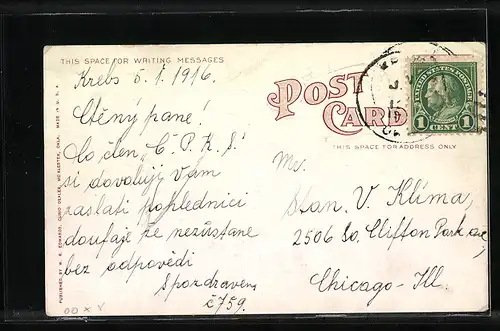 THIS SPACE FOR WRITING MESSAGES
Krebs 5.1.1916.
Ctěný pane!
Co člen „Č. P. K. S.“
si dovoluji Vám
zaslati pohlednici
doufaje že nezůstane
bez odpovědi
S pozdravem
č 759.
OO X V
PUBLISHED BY W. E. EDWARDS, CURIO DEALER, McALESTER, OKLA. MADE IN U. S. A.
POST
CARD
THIS SPACE FOR ADDRESS ONLY
UNITED STATES POSTAGE
1 CENT 1
Mr.
Stan. V. Klíma,
2506 So. Clifton Park ave,
Chicago - Ill.